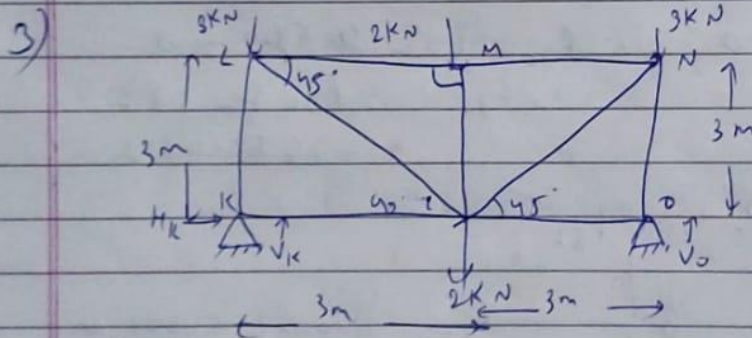 3)
3KN 2KN 3KN
L M N
45°
3m 3m
K 45° O
H_K V_K V_O
2KN
3m 3m